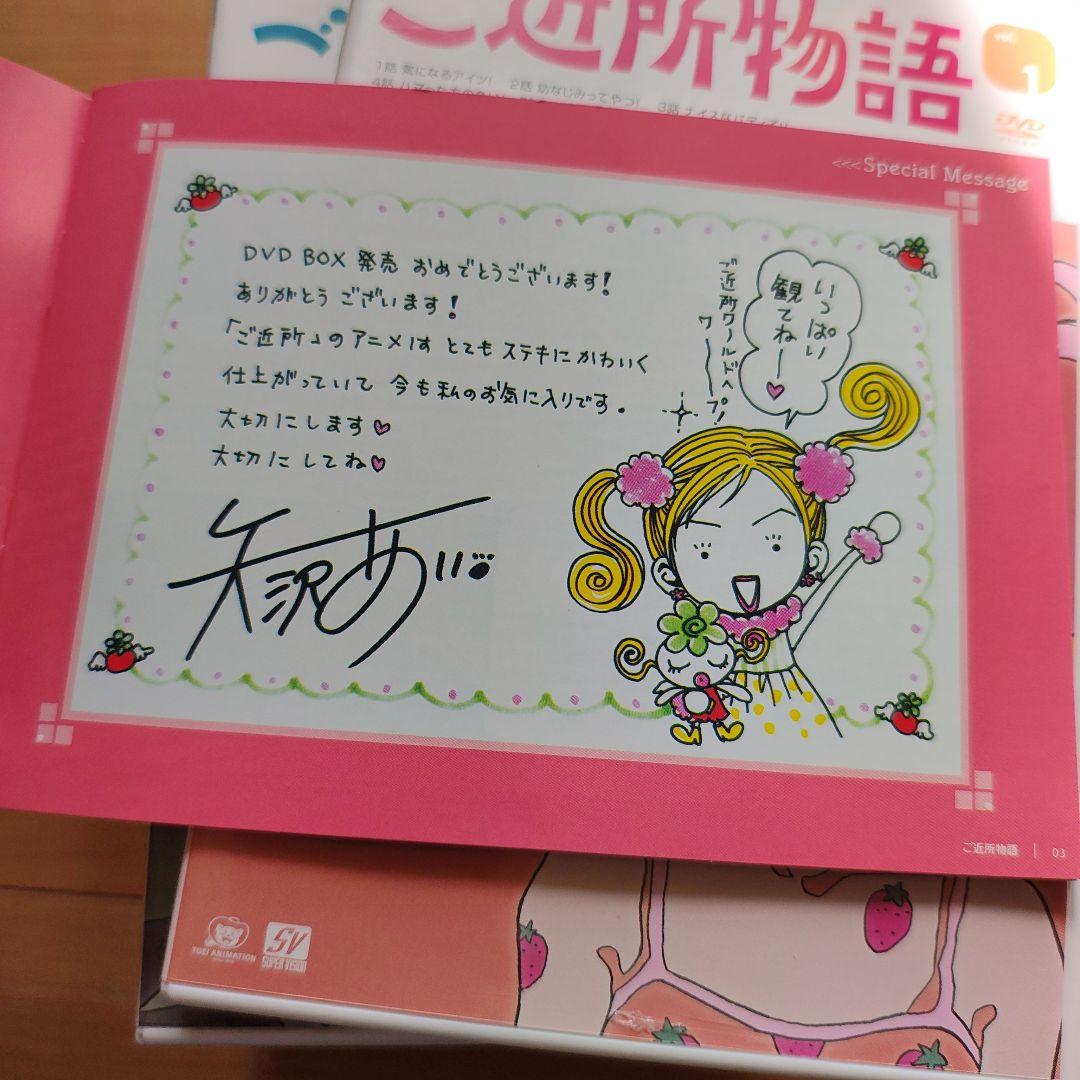 ご近所物語
vol.
1
DVD
1話 気になるアイツ! 2話 幼なじみってやつ! 3話 ナイスなバディ
4話
<<<Special Message
DVD BOX 発売 おめでとうございます!
ありがとう ございます!
「ご近所」のアニメは とても ステキに かわいく
仕上がっていて 今も私のお気に入りです。
大切にします♥
大切にしてね♥
矢沢あい
いっぱい
観てねー♥
ご近所ワールドへ
ワープ!
ご近所物語 | 03
TOEI ANIMATION
SV
SUPER VISION